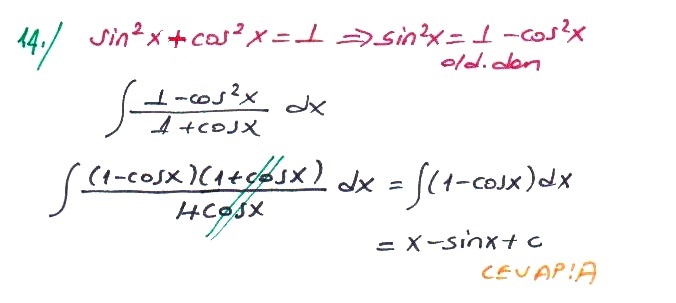 14./ sin²x + cos²x = 1 ⇒ sin²x = 1 - cos²x
old.dan
∫ (1 - cos²x)/(1 + cosx) dx
∫ ((1 - cosx)(1 + cosx))/(1 + cosx) dx = ∫(1 - cosx)dx
= x - sinx + c
CEVAP:A